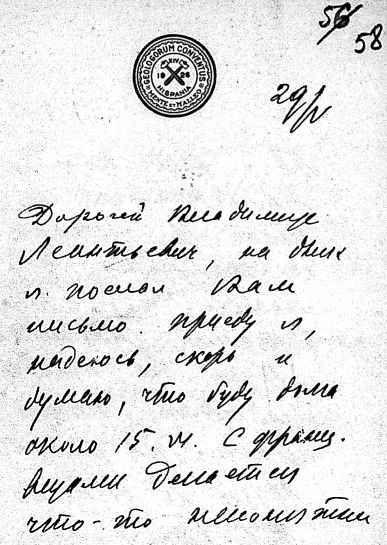 56
58
GEOLOGORUM CONVENTUS
XIV
1926
HISPANIA
MENTE ET MALLEO
29/V
Дорогой Владимир
Леонтьевич, на днях
я послал Вам
письмо. Приеду я,
надеюсь, скоро и
думаю, что буду дома
около 15.VI. С франц-
узами делается
что-то непонятно